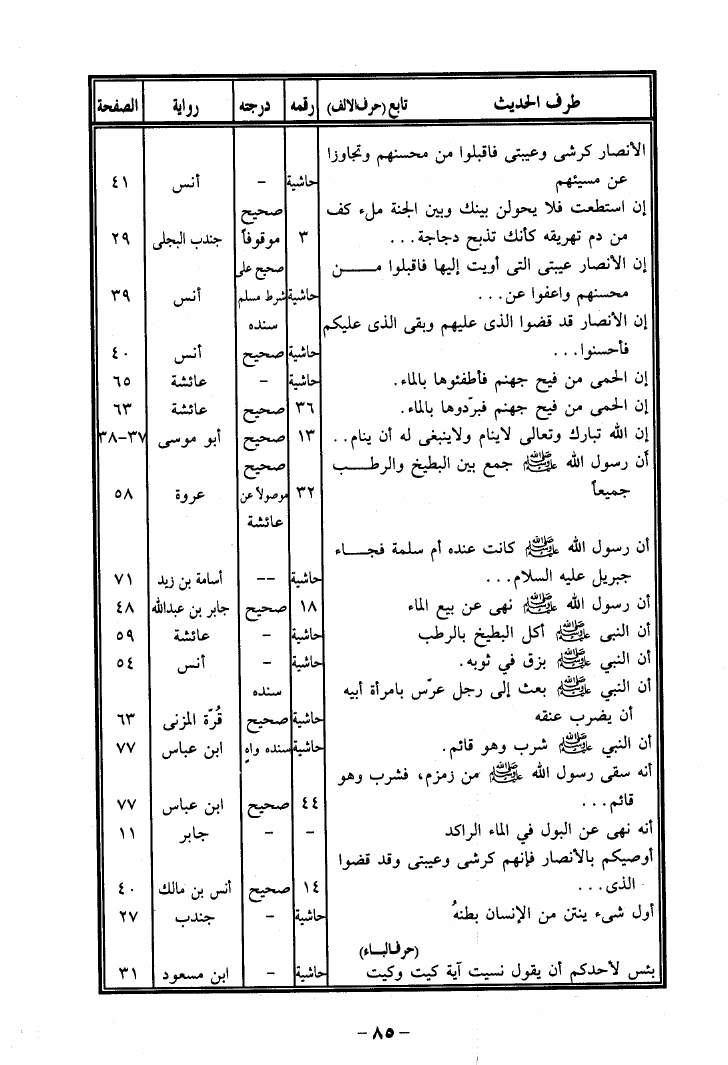 طرف الحديث تابع (حرف الالف) رقمه درجته رواية الصفحة
الأنصار كرشى وعيبتى فاقبلوا من محسنهم وتجاوزا
عن مسيئهم حاشية – أنس ٤١
إن استطعت فلا يحولن بينك وبين الجنة ملء كف صحيح
من دم تهريقه كأنك تذبح دجاجة... ٣ موقوفاً جندب البجلى ٢٩
إن الأنصار عيبتى التى أويت إليها فاقبلوا مــن صحيح على
محسنهم واعفوا عن... حاشية شرط مسلم أنس ٣٩
إن الأنصار قد قضوا الذى عليهم وبقى الذى عليكم سنده
فأحسنوا... حاشية صحيح أنس ٤٠
إن الحمى من فيح جهنم فأطفئوها بالماء. حاشية – عائشة ٦٥
إن الحمى من فيح جهنم فبرّدوها بالماء. ٣٦ صحيح عائشة ٦٣
إن الله تبارك وتعالى لاينام ولاينبغى له أن ينام.. ١٣ صحيح أبو موسى ٣٧-٣٨
أن رسول الله ﷺ جمع بين البطيخ والرطــب صحيح
جميعاً ٣٢ موصولاً عن عروة ٥٨
عائشة
أن رسول الله ﷺ كانت عنده أم سلمة فجــاء
جبريل عليه السلام... حاشية -- أسامة بن زيد ٧١
أن رسول الله ﷺ نهى عن بيع الماء ١٨ صحيح جابر بن عبدالله ٤٨
أن النبى ﷺ أكل البطيخ بالرطب حاشية – عائشة ٥٩
أن النبي ﷺ بزق في ثوبه. حاشية – أنس ٥٤
أن النبي ﷺ بعث إلى رجل عرّس بامرأة أبيه سنده
أن يضرب عنقه حاشية صحيح قُرّة المزنى ٦٣
أن النبي ﷺ شرب وهو قائم. حاشية سنده واهٍ ابن عباس ٧٧
أنه سقى رسول الله ﷺ من زمزم، فشرب وهو
قائم... ٤٤ صحيح ابن عباس ٧٧
أنه نهى عن البول في الماء الراكد – – جابر ١١
أوصيكم بالأنصار فإنهم كرشى وعيبتى وقد قضوا
الذى... ١٤ صحيح أنس بن مالك ٤٠
أول شىء ينتن من الإنسان بطنهُ حاشية – جندب ٢٧
(حرف الباء)
بئس لأحدكم أن يقول نسيت آية كيت وكيت حاشية – ابن مسعود ٣١
– ٨٥ –